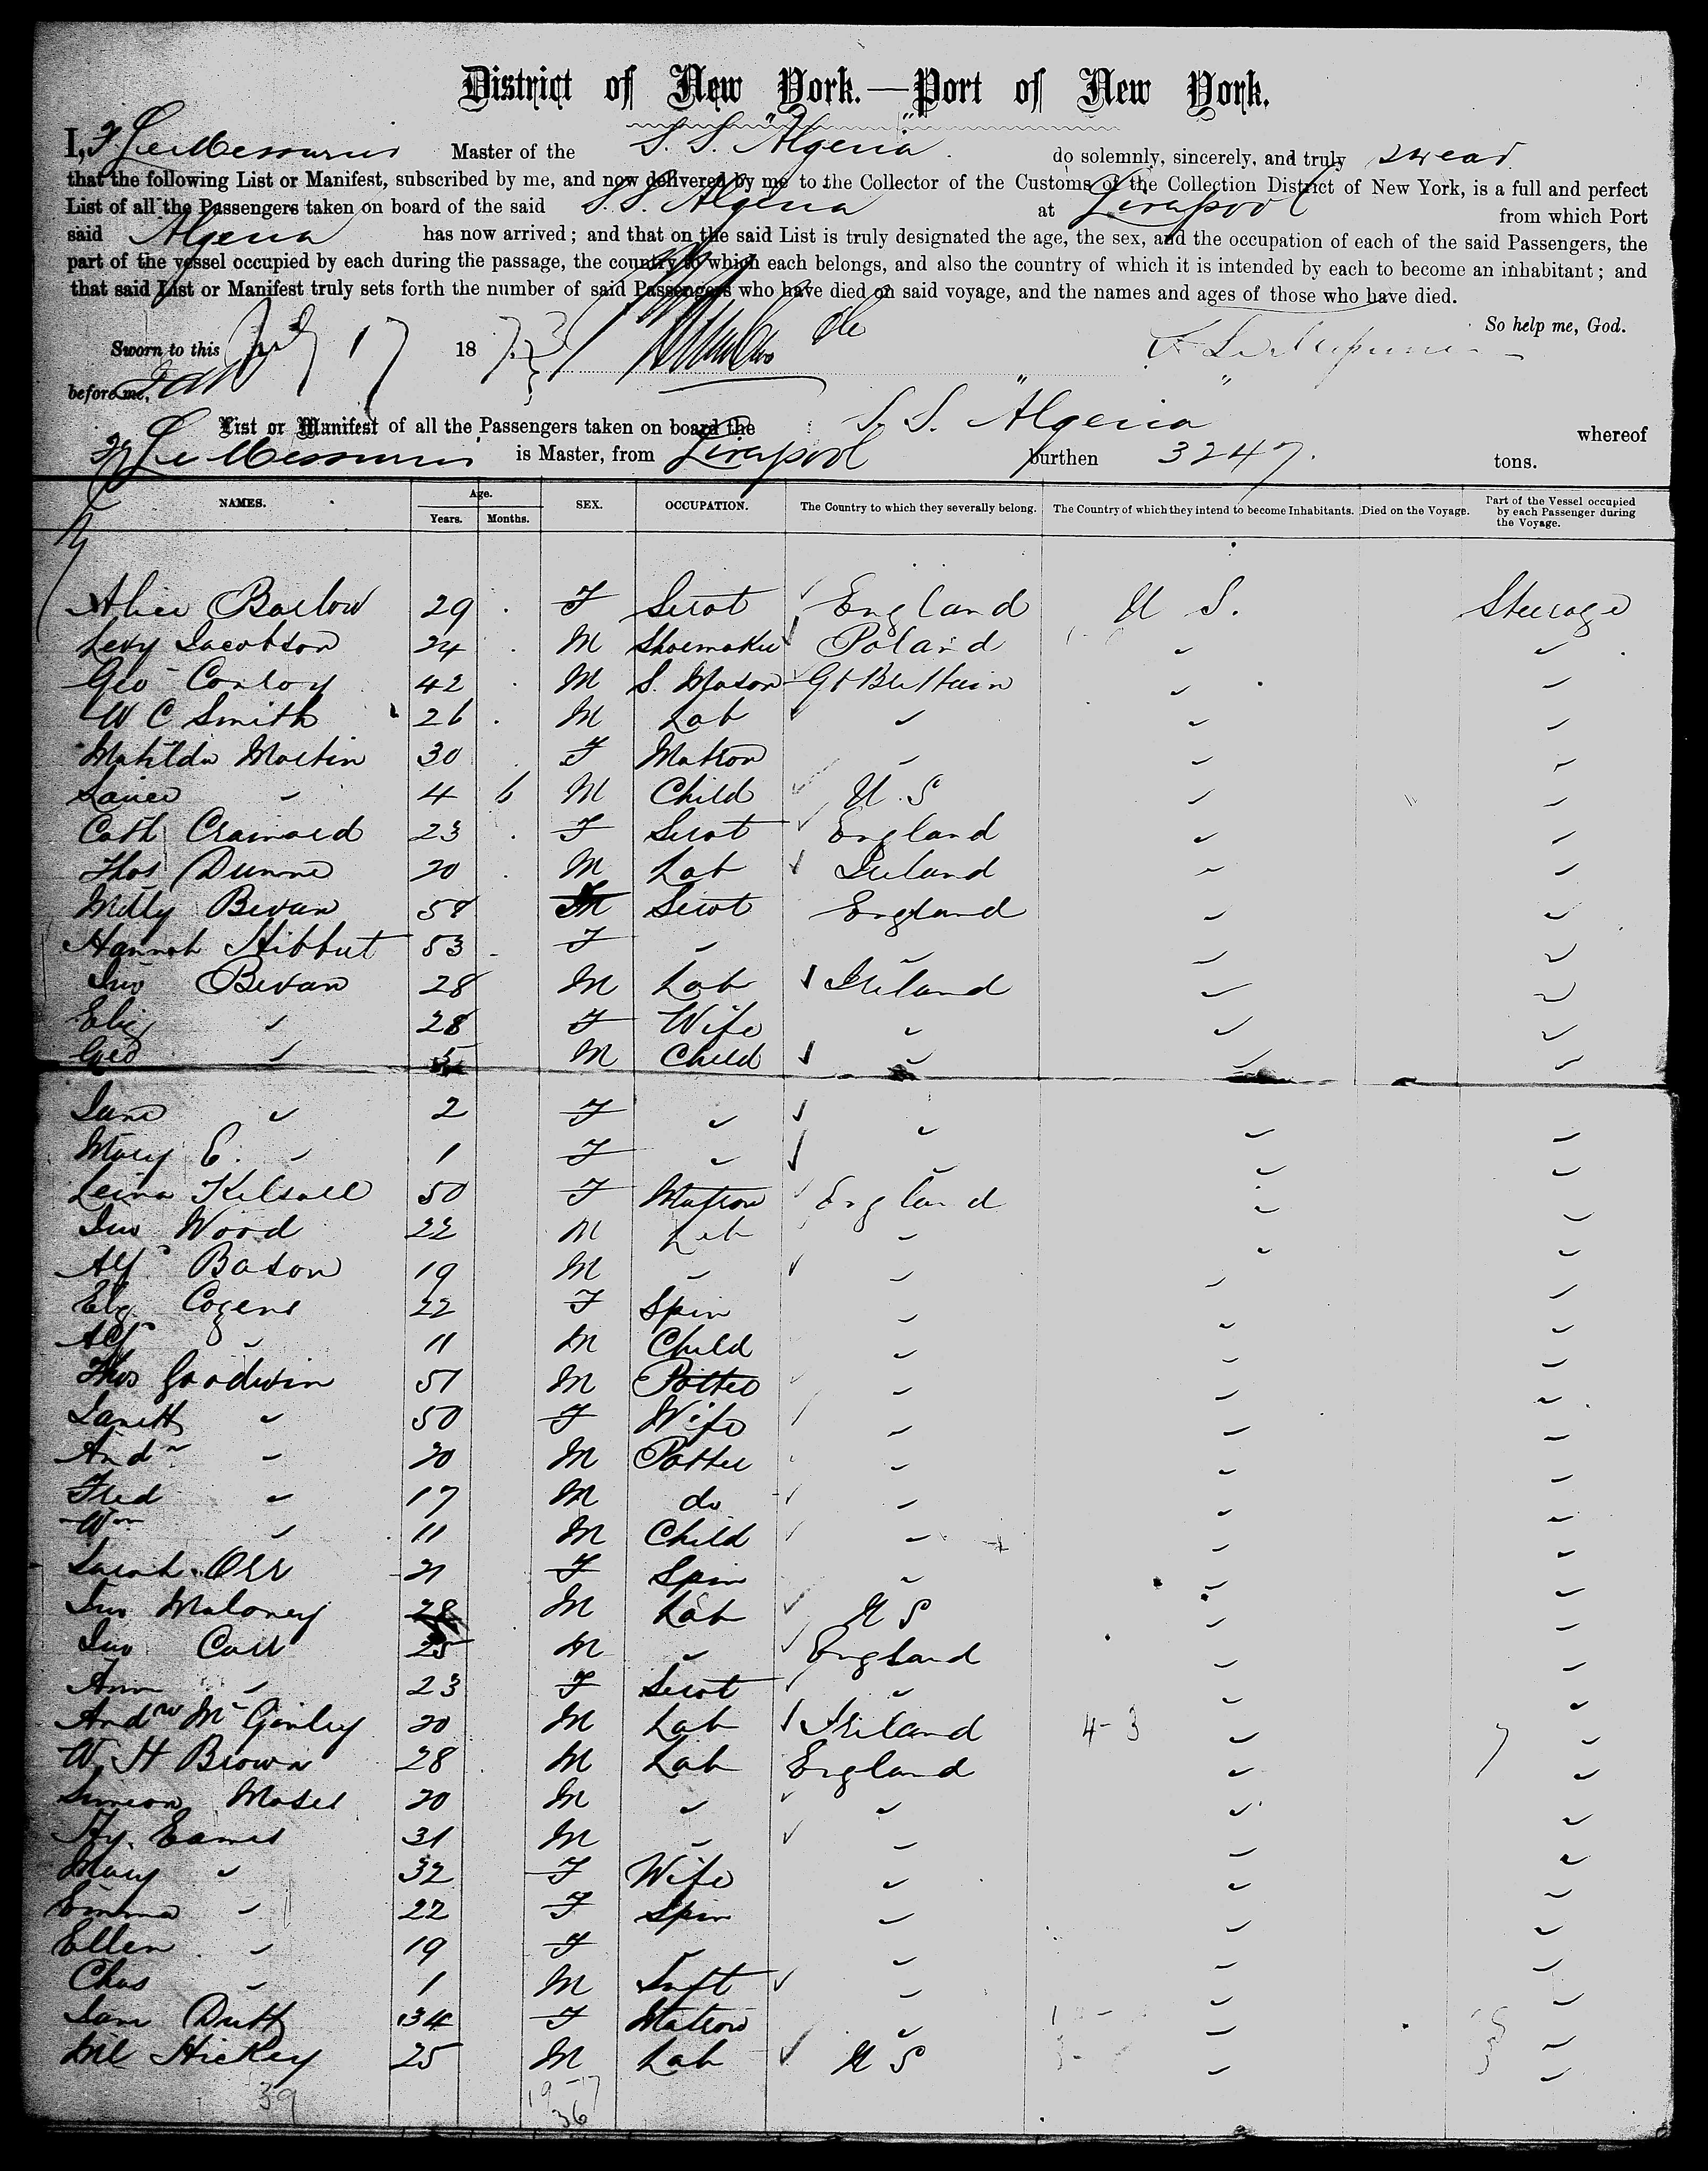 District of New York.—Port of New York.
I, F Le Messurier Master of the S. S. "Algeria" do solemnly, sincerely, and truly swear
that the following List or Manifest, subscribed by me, and now delivered by me to the Collector of the Customs of the Collection District of New York, is a full and perfect
List of all the Passengers taken on board of the said S.S. Algeria at Liverpool from which Port
said Algeria has now arrived; and that on the said List is truly designated the age, the sex, and the occupation of each of the said Passengers, the
part of the vessel occupied by each during the passage, the country to which each belongs, and also the country of which it is intended by each to become an inhabitant; and
that said List or Manifest truly sets forth the number of said Passengers who have died on said voyage, and the names and ages of those who have died.
So help me, God.
Sworn to this July 17 1873 F Le Messurier
before me,
List or Manifest of all the Passengers taken on board the S. S. "Algeria" whereof
F Le Messurier is Master, from Liverpool burthen 3247. tons.
NAMES. Age. Years. Months. SEX. OCCUPATION. The Country to which they severally belong. The Country of which they intend to become Inhabitants. Died on the Voyage. Part of the Vessel occupied by each Passenger during the Voyage.
Alice Barlow 29 F Servt England U S. Steerage
Levy Jacobson 24 M Shoemaker Poland " "
Geo Conloy 42 M S. Mason Gt Brittain " "
W C Smith 26 M Lab " " "
Matilda Martin 30 F Matron " " "
" 4 6 M Child U.S " "
Cath 23 F Servt England " "
Thos Dunne 20 M Lab Ireland " "
Milly Bevan 58 Servt England " "
Hannah Hibbut 53 F " " " "
Jno Bevan 28 M Lab Ireland " "
Eliz " 28 F Wife " " "
Geo " 5 M Child " " "
Jane " 2 F " " " "
Mary E. " 1 F " " " "
Kelsall 50 F Matron England " "
Jno Wood 22 M Lab " " "
Alf Bason 19 M " " " "
Eliz Cozens 22 F Spin " " "
Alf " 11 M Child " " "
Thos Goodwin 51 M Potter " " "
Janett " 50 F Wife " " "
Andw " 20 M Potter " " "
Fred " 17 M do " " "
Wm " 11 M Child " " "
Sarah Orr 21 F Spin " " "
Jno Maloney 28 M Lab U S " "
Jno Carr 25 M " England " "
Ann " 23 F Servt " " "
Andw McGinley 20 M Lab Ireland 4-3 " "
W. H Brown 28 M Lab England " "
Simeon Moses 20 M " " " "
Hy. Eames 31 M " " " "
Mary " 32 F Wife " " "
Emma " 22 F Spin " " "
Ellen " 19 F " " " "
Chas " 1 M Inft " " "
Jane Dutt 34 F Matron " " "
Ml Hickey 25 M Lab U S " "
39 19-17
36